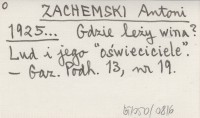 o
ZACHEMSKI Antoni
1925... Gdzie leży wina?
Lud i jego "oświeciciele".
– Gaz. Podh. 13, nr 19.